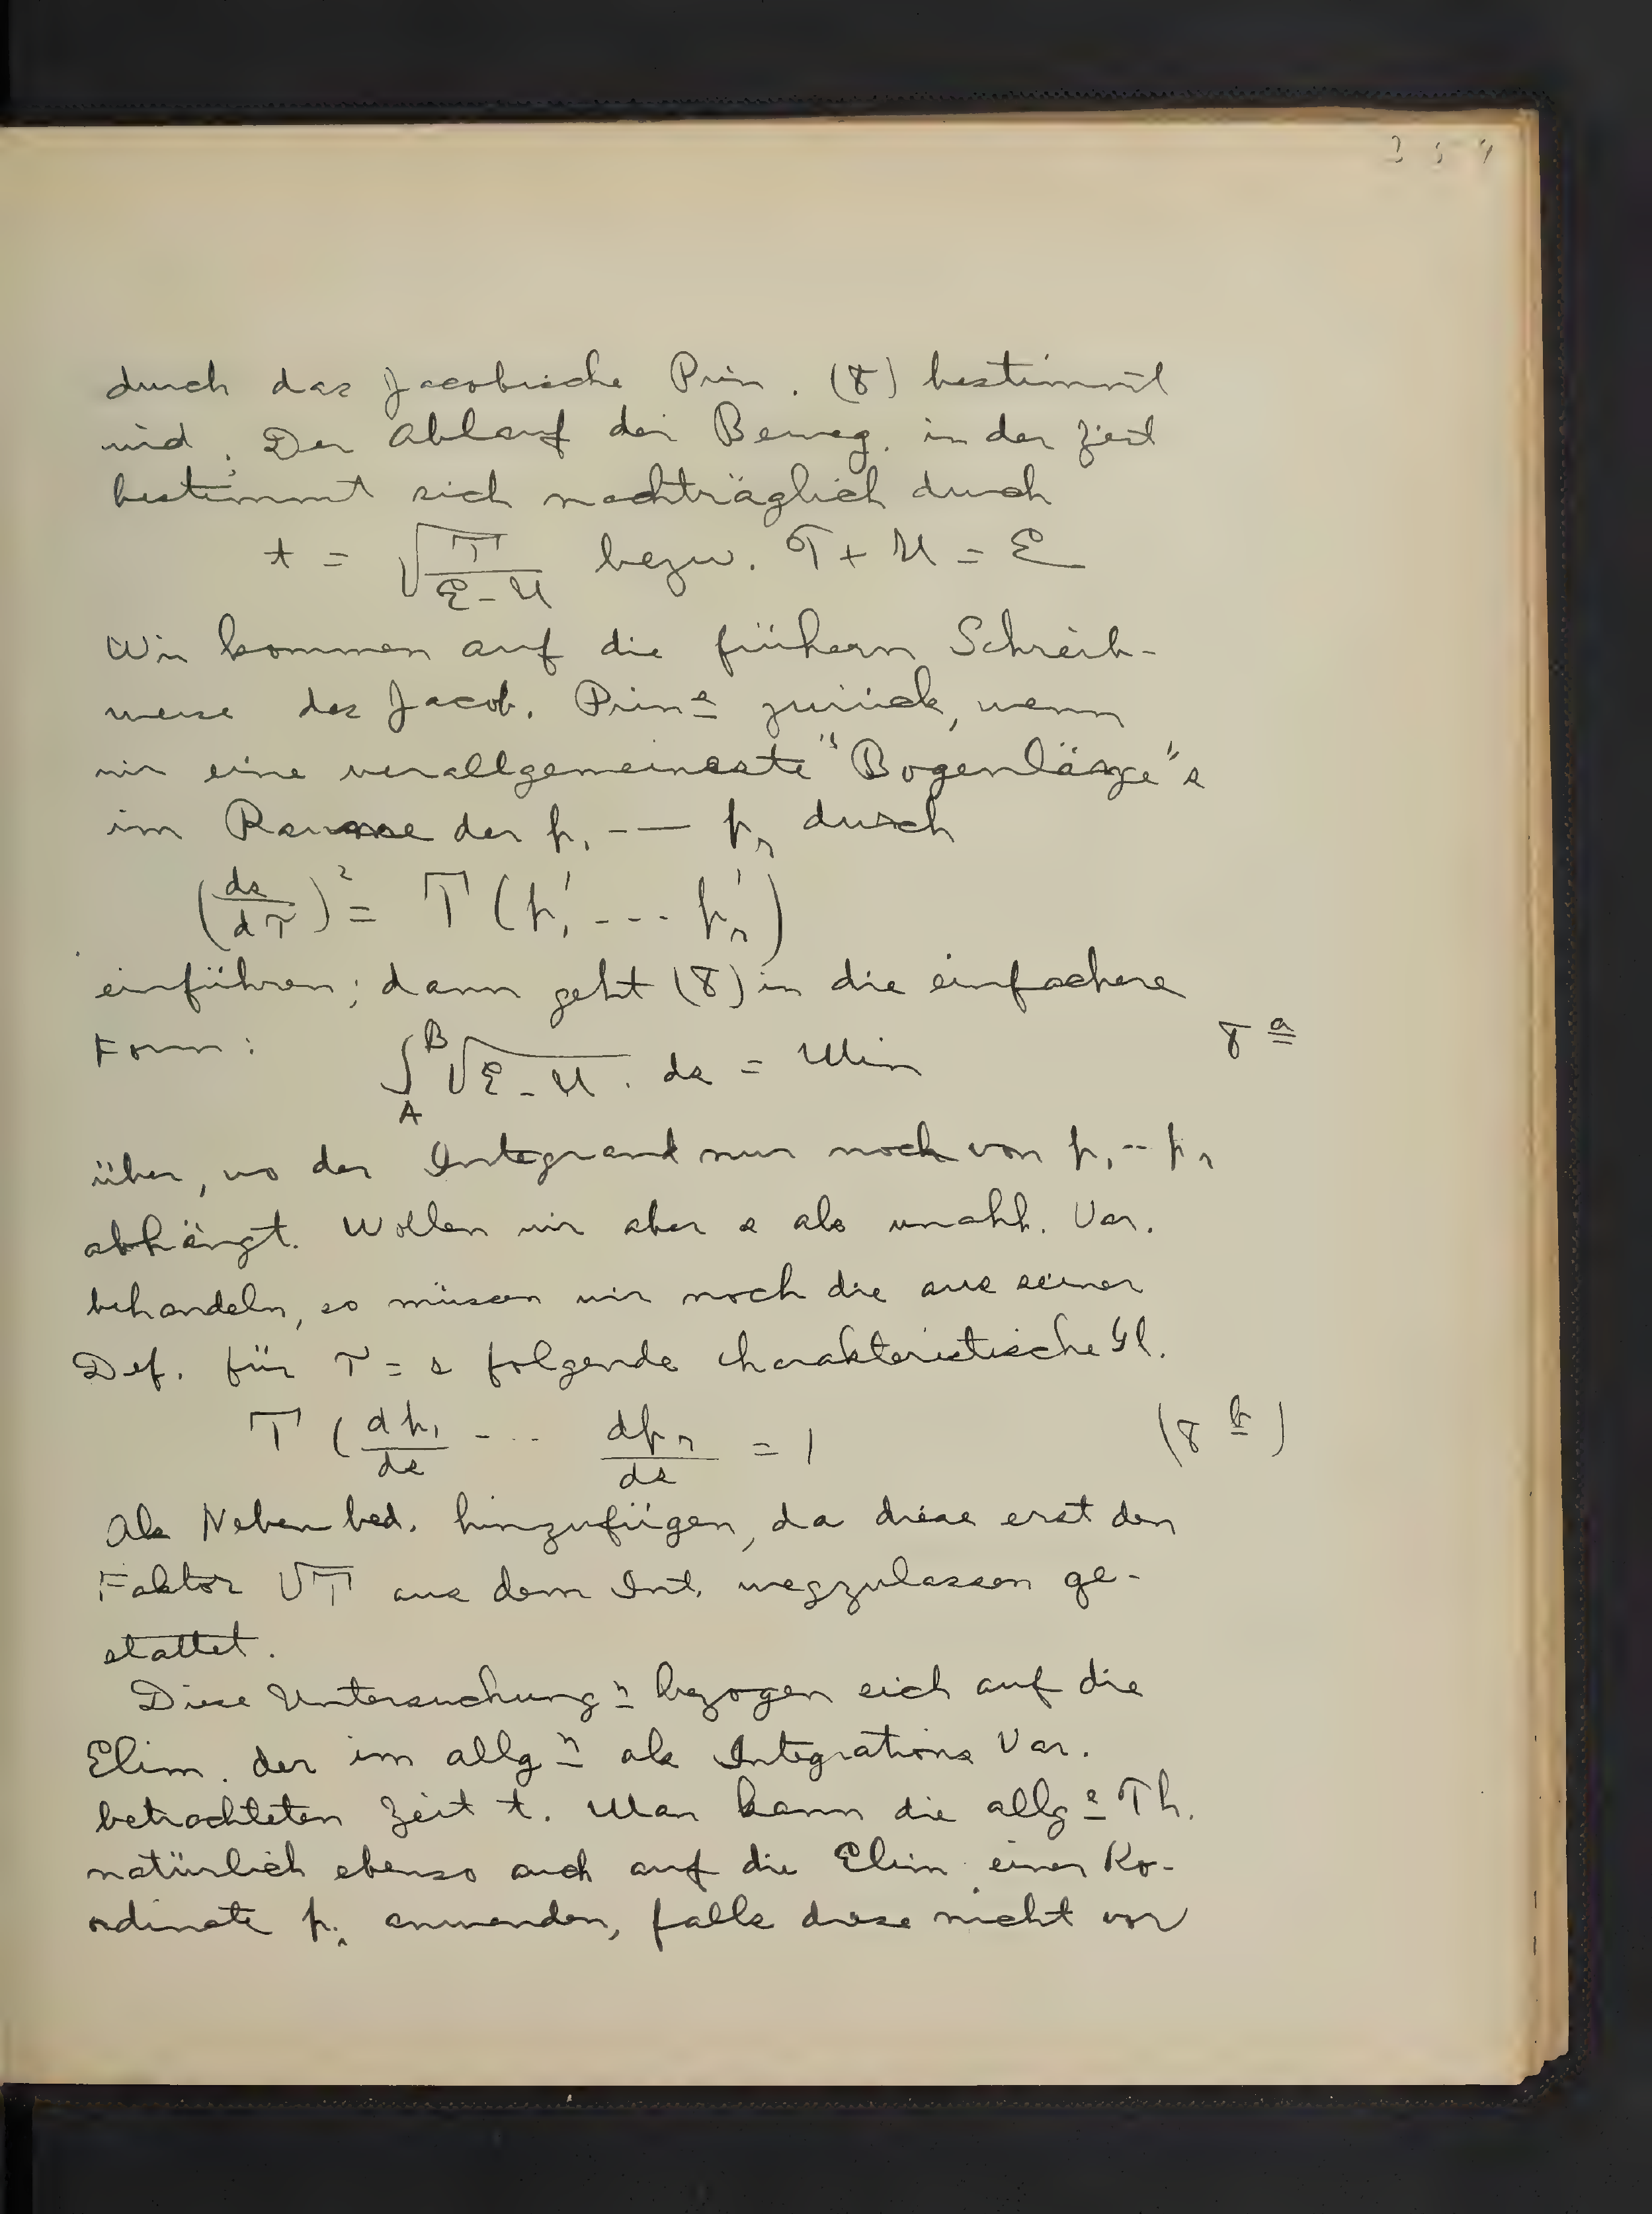 durch das Jacobische Prin. (8) bestimmt
wird. Der Ablauf der Beweg. in der Zeit
bestimmt sich nachträglich durch
t = √(T/(E-U)) bezw. T + U = E
Wir kommen auf die frühern Schreib-
weise des Jacob. Prin.s zurück, wenn
wir eine verallgemeinerte "Bogenlänge" s
im Raume der p₁ -— pₙ durch
(ds/dτ)² = T (p₁' --- pₙ')
einführen; dann geht (8) in die einfachere
Form: ∫_A^B √(E-U) . ds = Min 8a
über, wo der Integrand nur noch von p₁ -- pₙ
abhängt. Wollen wir aber s als unabh. Var.
behandeln, so müssen wir noch die aus seiner
Def. für τ = s folgende charakteristische Gl.
T (dp₁/ds - .. dpₙ/ds = 1 (8b)
Als Nebenbed. hinzufügen, da diese erst den
Faktor √T aus dem Int. wegzulassen ge-
stattet.
Diese Untersuchungn bezogen sich auf die
Elim. der im allgn als Integrations Var.
betrachteten Zeit t. Man kann die allge Th.
natürlich ebenso auch auf die Elim. einer Ko-
ordinate p. anwenden, falls diese nicht vor